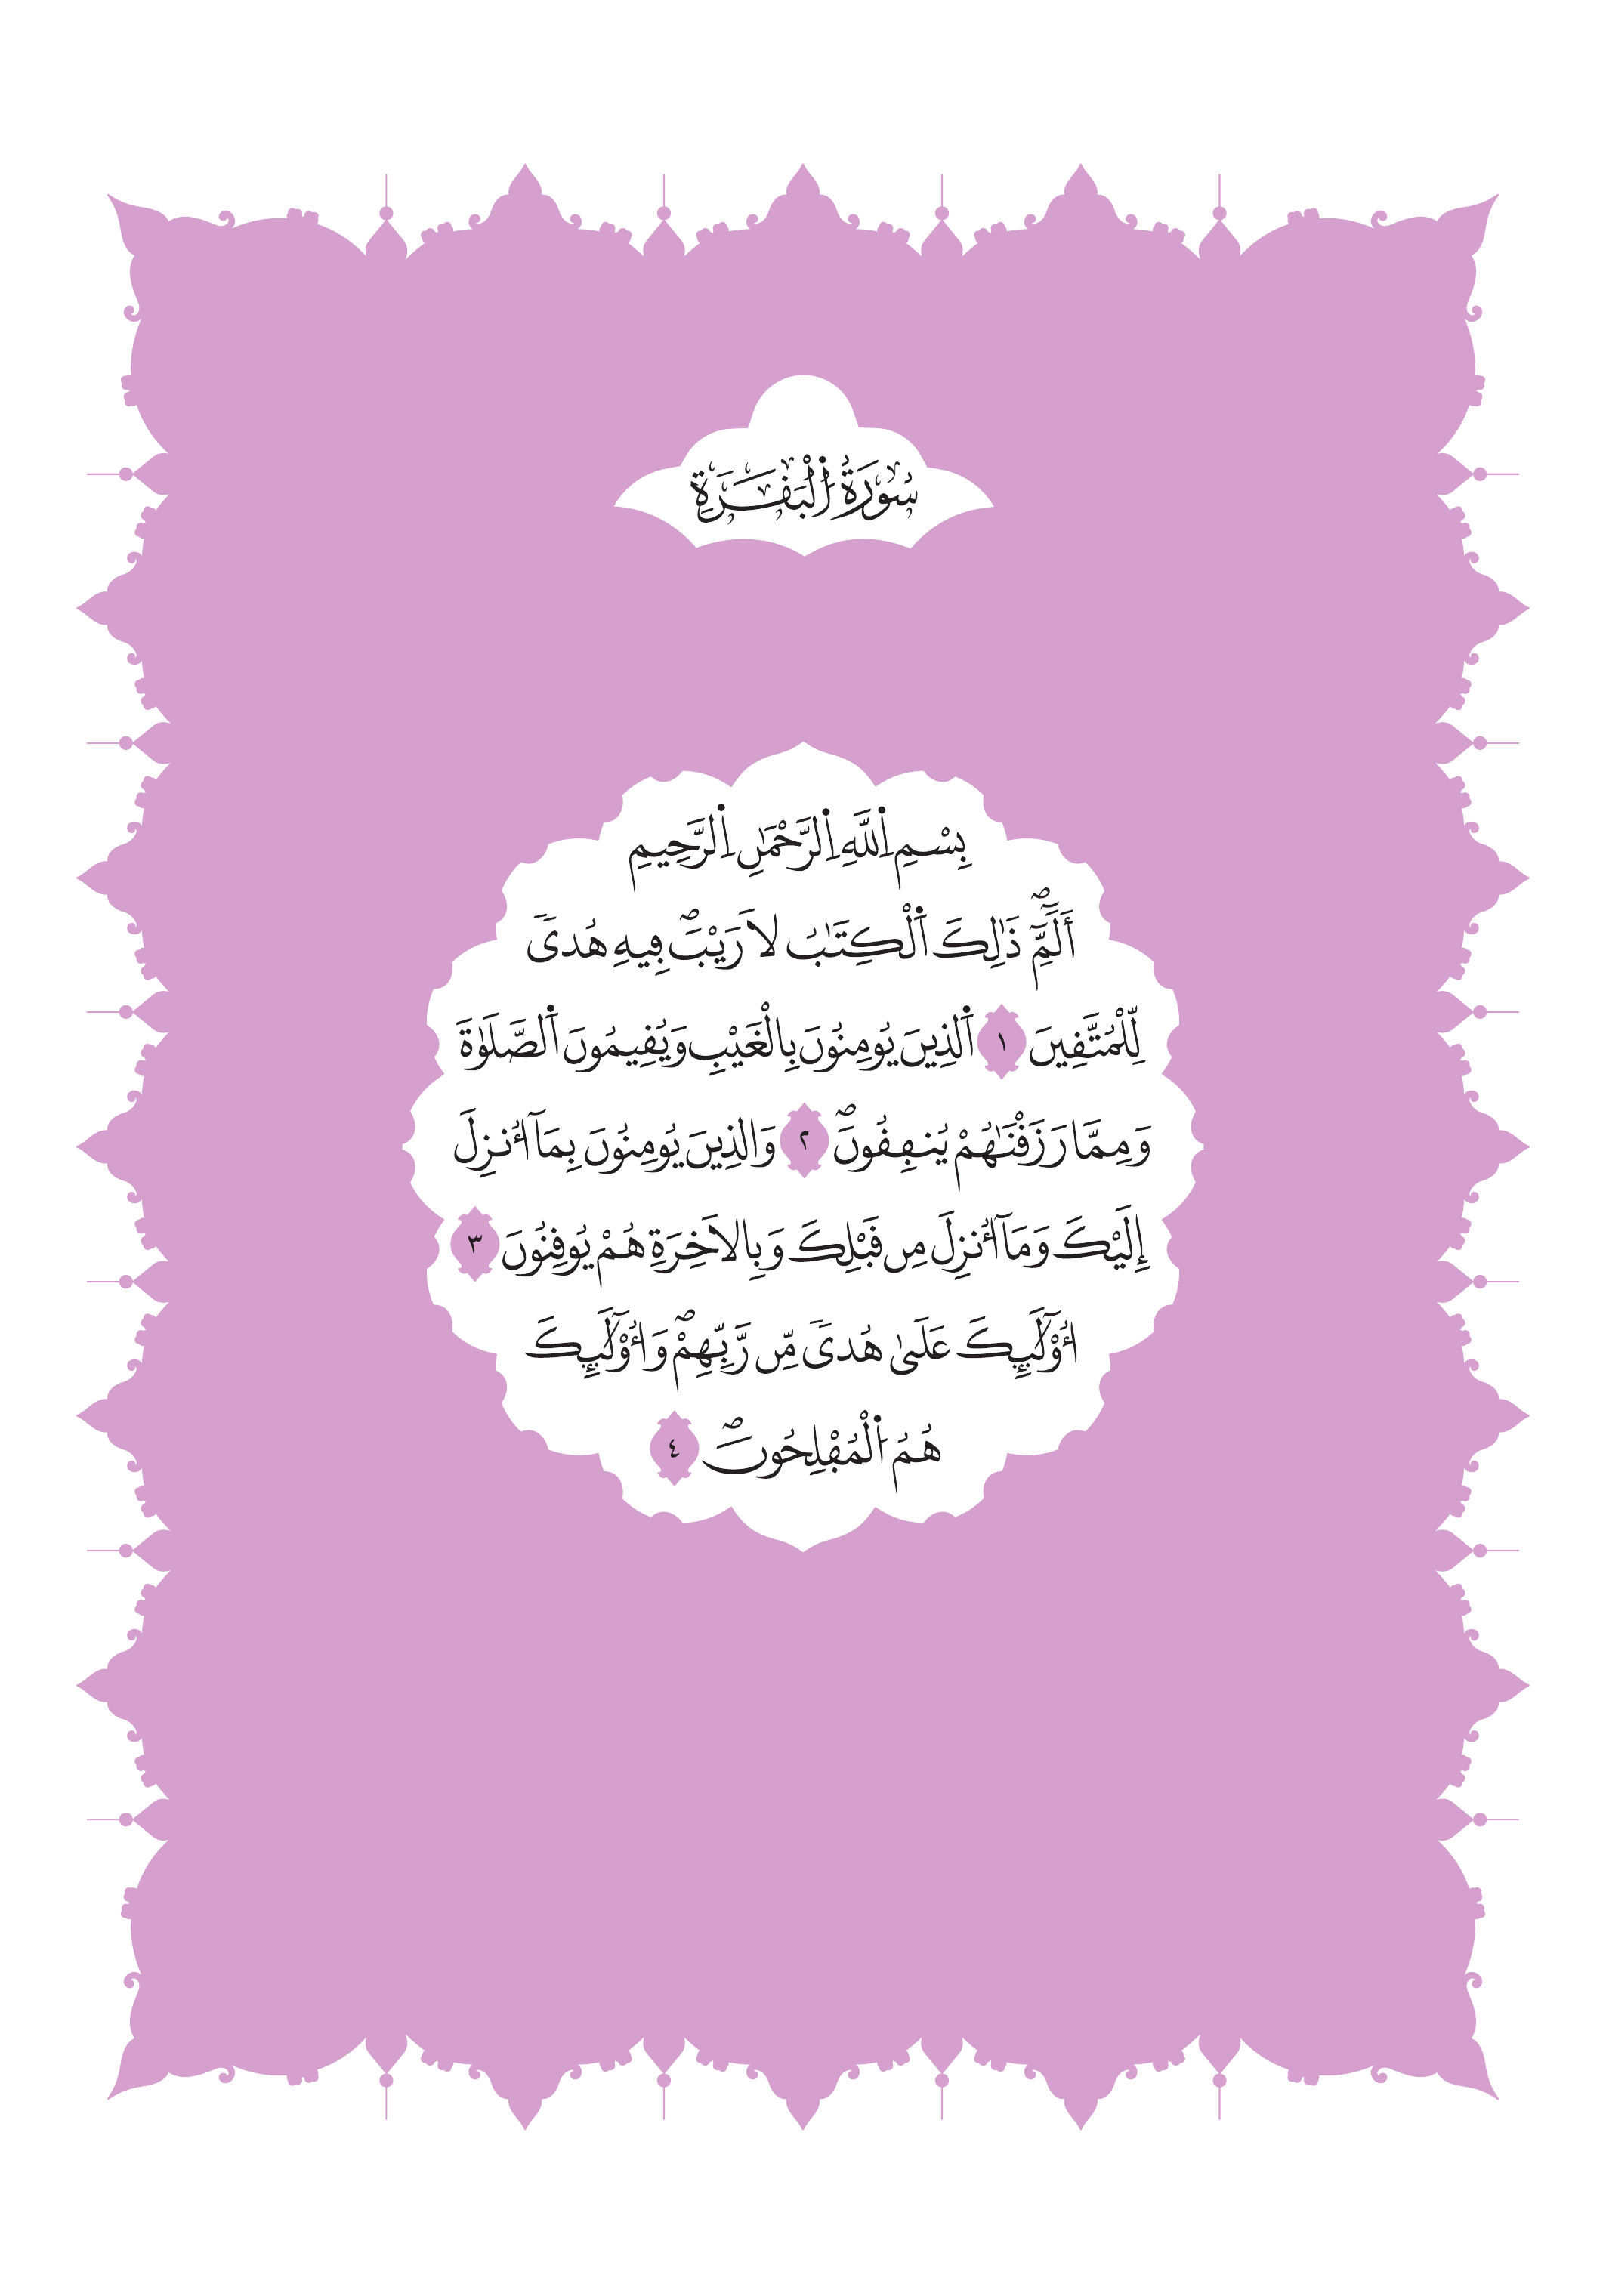 سُورَةُ اُ۬لْبَقَرَةِ
بِسْمِ اِ۬للَّهِ اِ۬لرَّحْمَٰنِ اِ۬لرَّحِيمِ
أَلَٓمِّٓۖ ذَٰلِكَ اَ۬لْكِتَٰبُ لَا رَيْبَۖ فِيهِ هُدىٗ
لِّلْمُتَّقِينَ ١ اَ۬لذِينَ يُومِنُونَ بِالْغَيْبِ وَيُقِيمُونَ اَ۬لصَّلَوٰةَ
وَمِمَّا رَزَقْنَٰهُمْ يُنفِقُونَۖ ٢ وَالذِينَ يُومِنُونَ بِمَآ أُنزِلَ
إِلَيْكَ وَمَآ أُنزِلَ مِن قَبْلِكَ وَبِالَاخِرَةِ هُمْ يُوقِنُونَ ٣
أُوْلَٰٓئِكَ عَلَىٰ هُدىٗ مِّن رَّبِّهِمْۖ وَأُوْلَٰٓئِكَ
هُمُ اُ۬لْمُفْلِحُونَۖ ٤